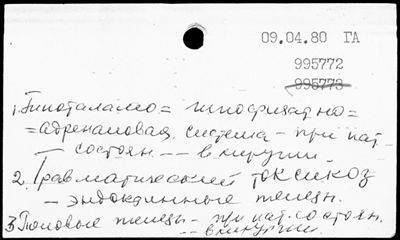 09.04.80 ГА
995772
995773
1. Гипоталамо= гипофизарно=
=адреналовая система - при пат.
состоян. -- в хирургии.
2. Травматический токсикоз
- эндокринные железы.
3. Половые железы - при пат. состоян.
-- в хирургии.